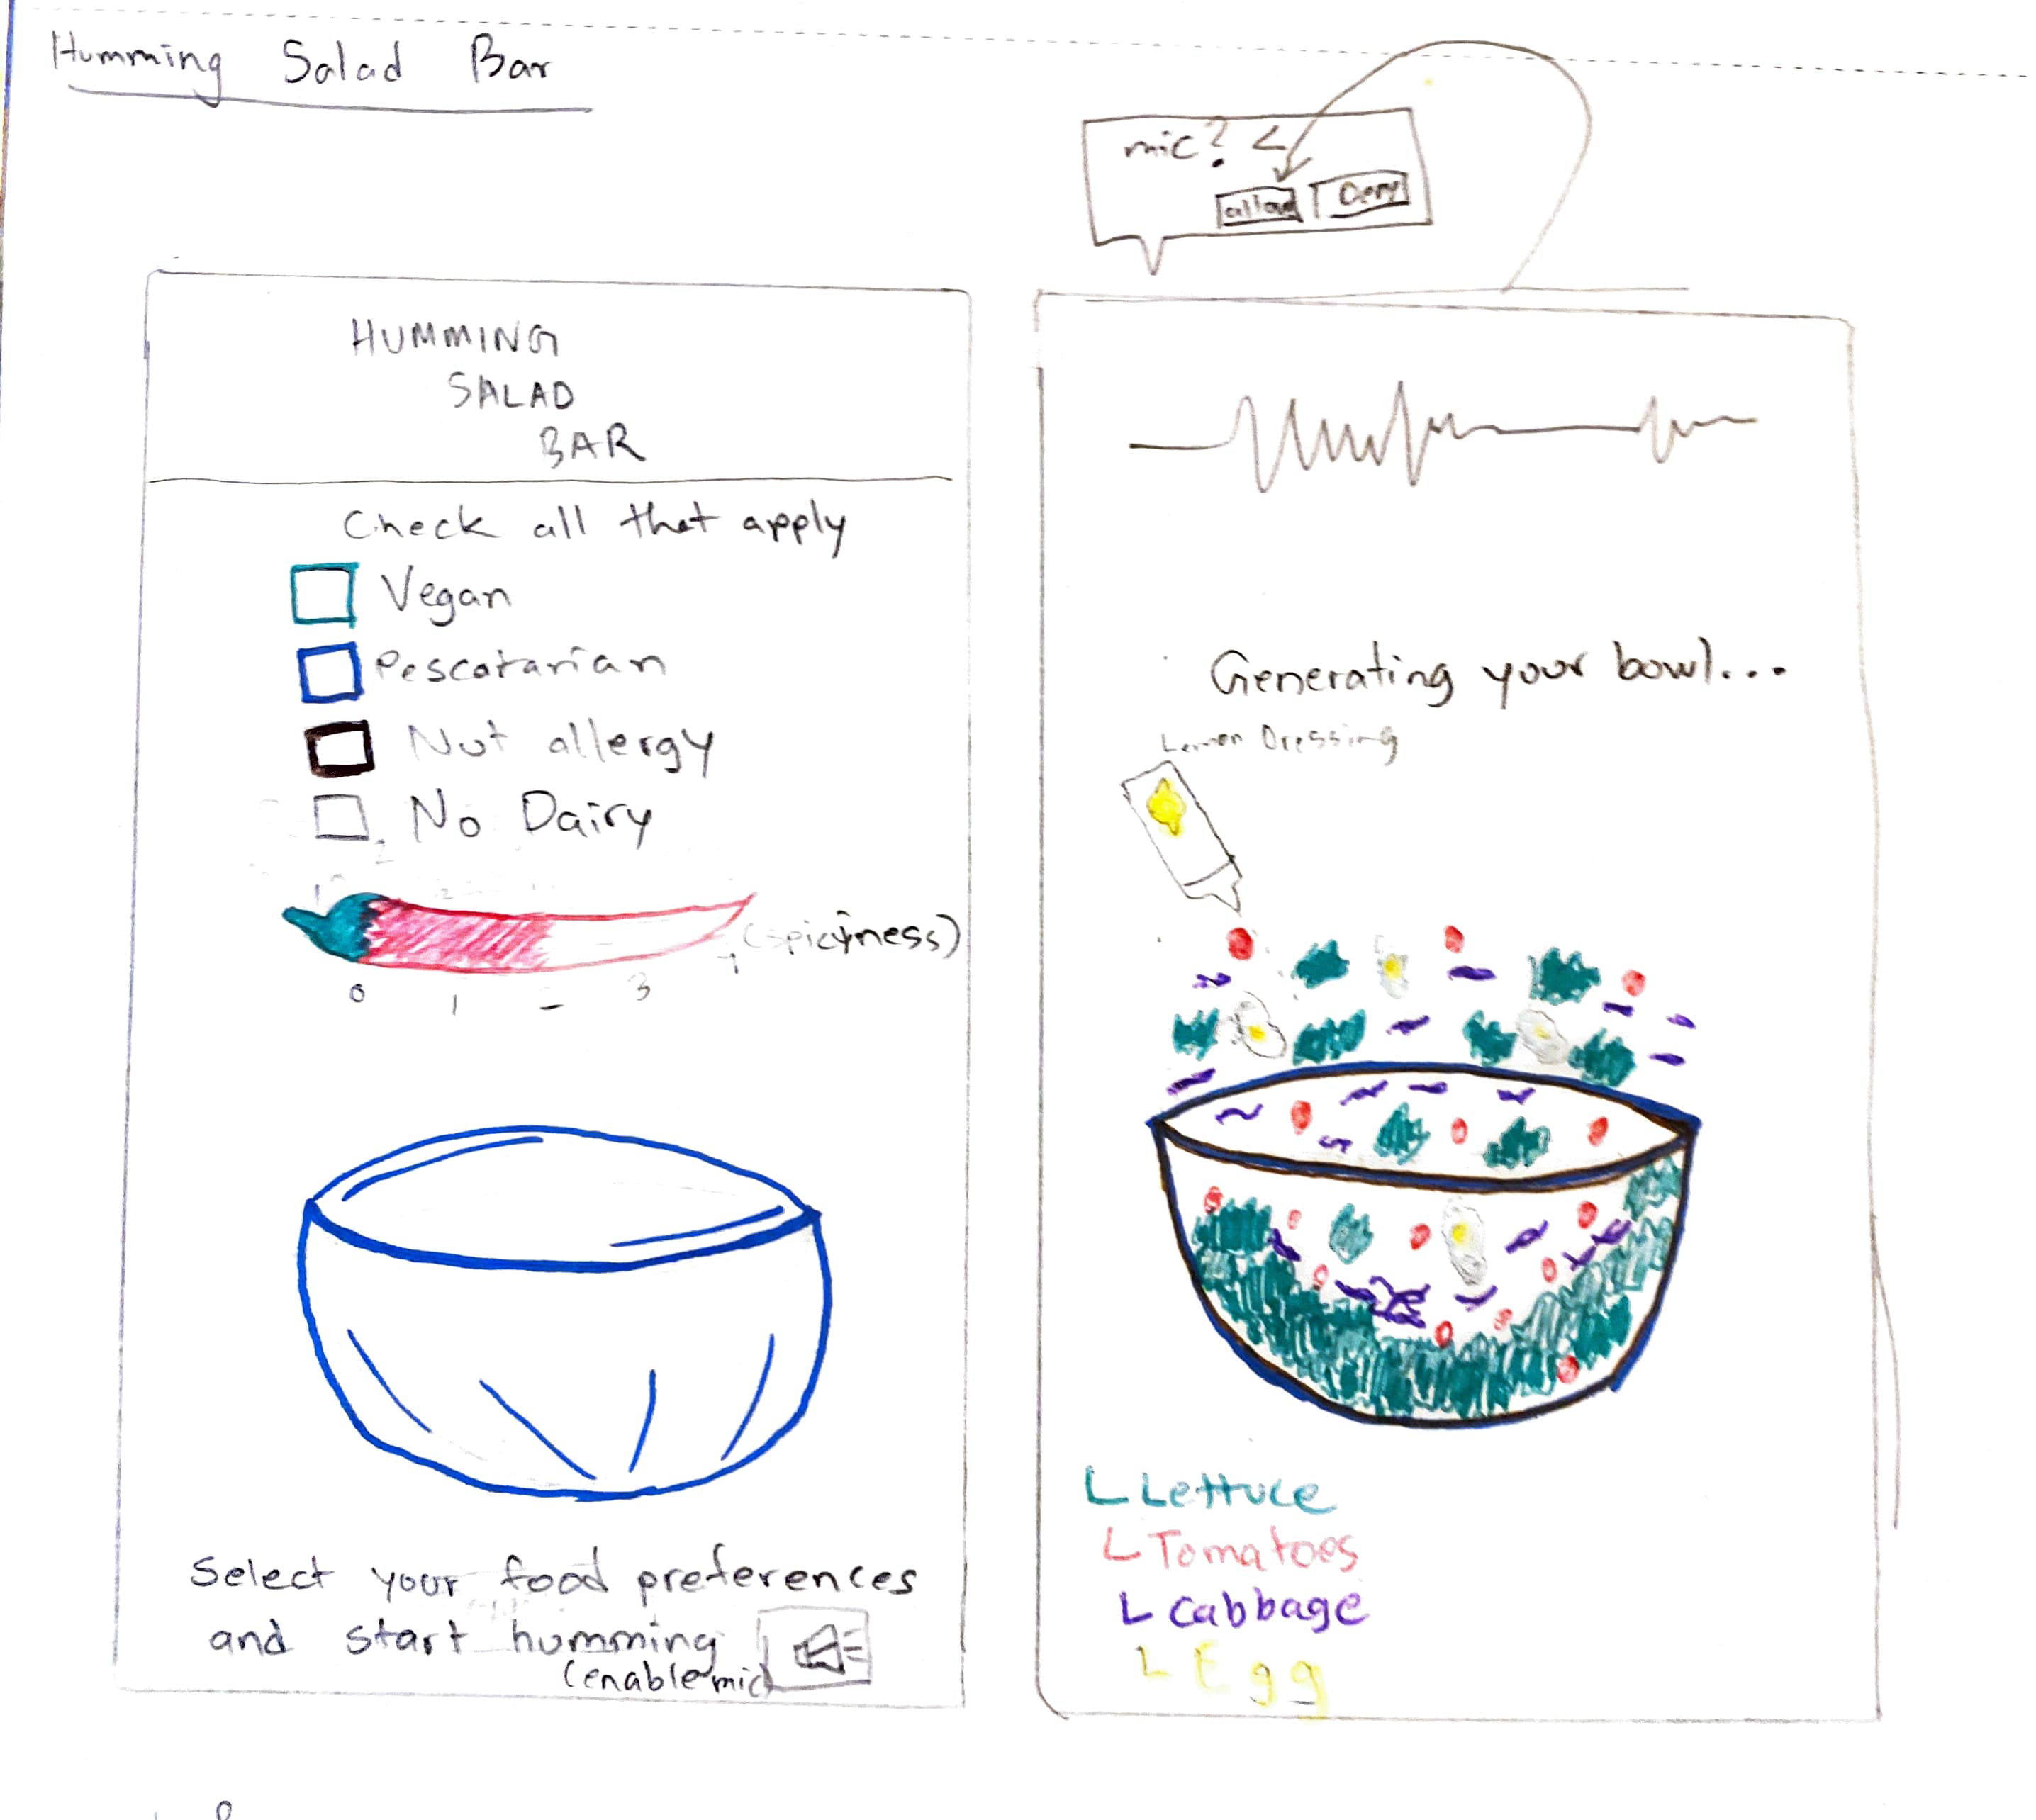 Humming Salad Bar
mic?
allow Deny
HUMMING
SALAD
BAR
Check all that apply
Vegan
Pescatarian
Nut allergy
No Dairy
(spicyness)
0 1 3
Select your food preferences
and start humming
(enable mic)
Generating your bowl...
Lemon Dressing
Lettuce
Tomatoes
Cabbage
Egg